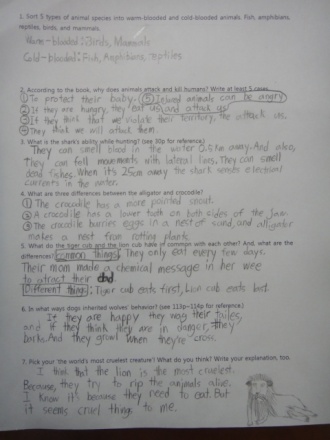 1. Sort 5 types of animal species into warm-blooded and cold-blooded animals. Fish, amphibians,
reptiles, birds, and mammals.
Warm-blooded: Birds, Mammals
Cold-blooded: Fish, Amphibians, reptiles
2. According to the book, why does animals attack and kill humans? Write at least 5 cases.
① To protect their baby. ⑤ Injured animals can be angry
② If they are hungry, they eat us and attack us.
③ If they think that we violate their territory, the attack us.
④ They think we will attack them.
3. What is the shark's ability while hunting? (see 30p for reference)
They can smell blood in the water 0.5km away. And also,
They can fell movements with lateral lines, They can smell
dead fishes. When it's 25cm away the shark senses electrical
currents in the water.
4. What are three differences between the alligator and crocodile?
① The crocodile has a more pointed snout.
② A crocodile has a lower tooth on both sides of the Jaw.
③ The crocodile barries eggs in a nest of sand, and alligator
makes a nest from rotting plants.
5. What do the tiger cub and the lion cub have in common with each other? And, what are the
differences? Common things: They only eat every few days.
Their mom made a chemical message in her wee
to atract their dad
Different things: Tiger cub eats first, Lion cub eats last.
6. In what ways dogs inherited wolves' behavior? (see 113p~114p for reference)
If they are happy they wag their tailes,
and if they think they are in danger, they
barks. And they growl when they're cross.
7. Pick your 'the world's most cruelest creature'! What do you think? Write your explanation, too.
I think that the lion is the most cruelest.
Because, they try to rip the animals alive.
I know it's because they need to eat. But
it seems cruel things to me.